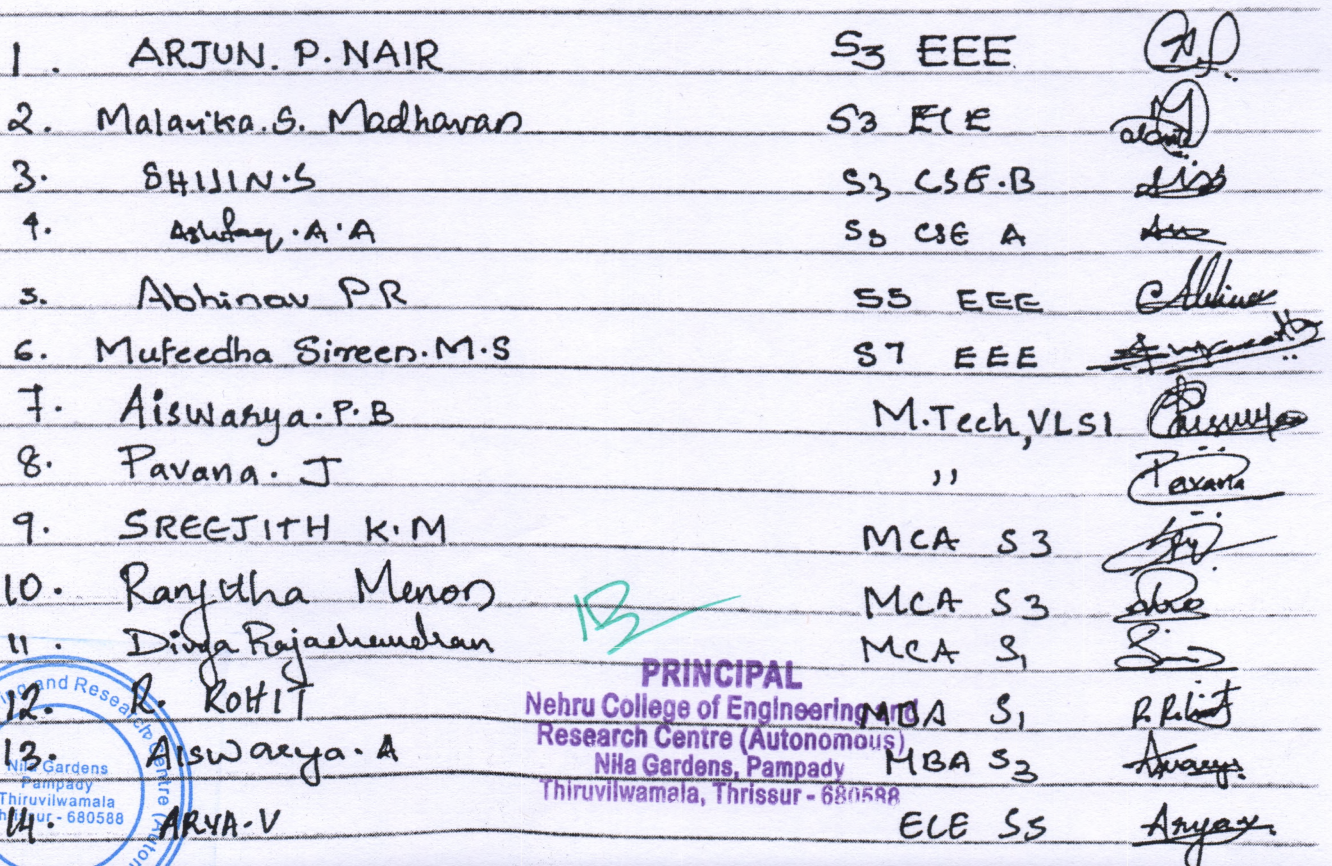 1. ARJUN. P. NAIR S3 EEE
2. Malavika. S. Madhavan S3 ECE
3. SHIJIN.S S3 CSE.B
4. Ashfaq.A.A S5 CSE A
5. Abhinav PR S5 EEE
6. Mufeedha Sireen.M.S S7 EEE
7. Aiswarya.P.B M.Tech, VLSI
8. Pavana. J ,, Pavana
9. SREEJITH K.M MCA S3
10. Ranjitha Menon MCA S3
11. Divya Rajachandran MCA S1
12. R. ROHIT MBA S1
13. Aiswarya. A MBA S3
14. ARYA.V ECE S5 Arya
PRINCIPAL
Nehru College of Engineering and
Research Centre (Autonomous)
Nila Gardens, Pampady
Thiruvilwamala, Thrissur - 680588
ing and Research Centre (Auton
Nila Gardens
Pampady
Thiruvilwamala
Thrissur - 680588